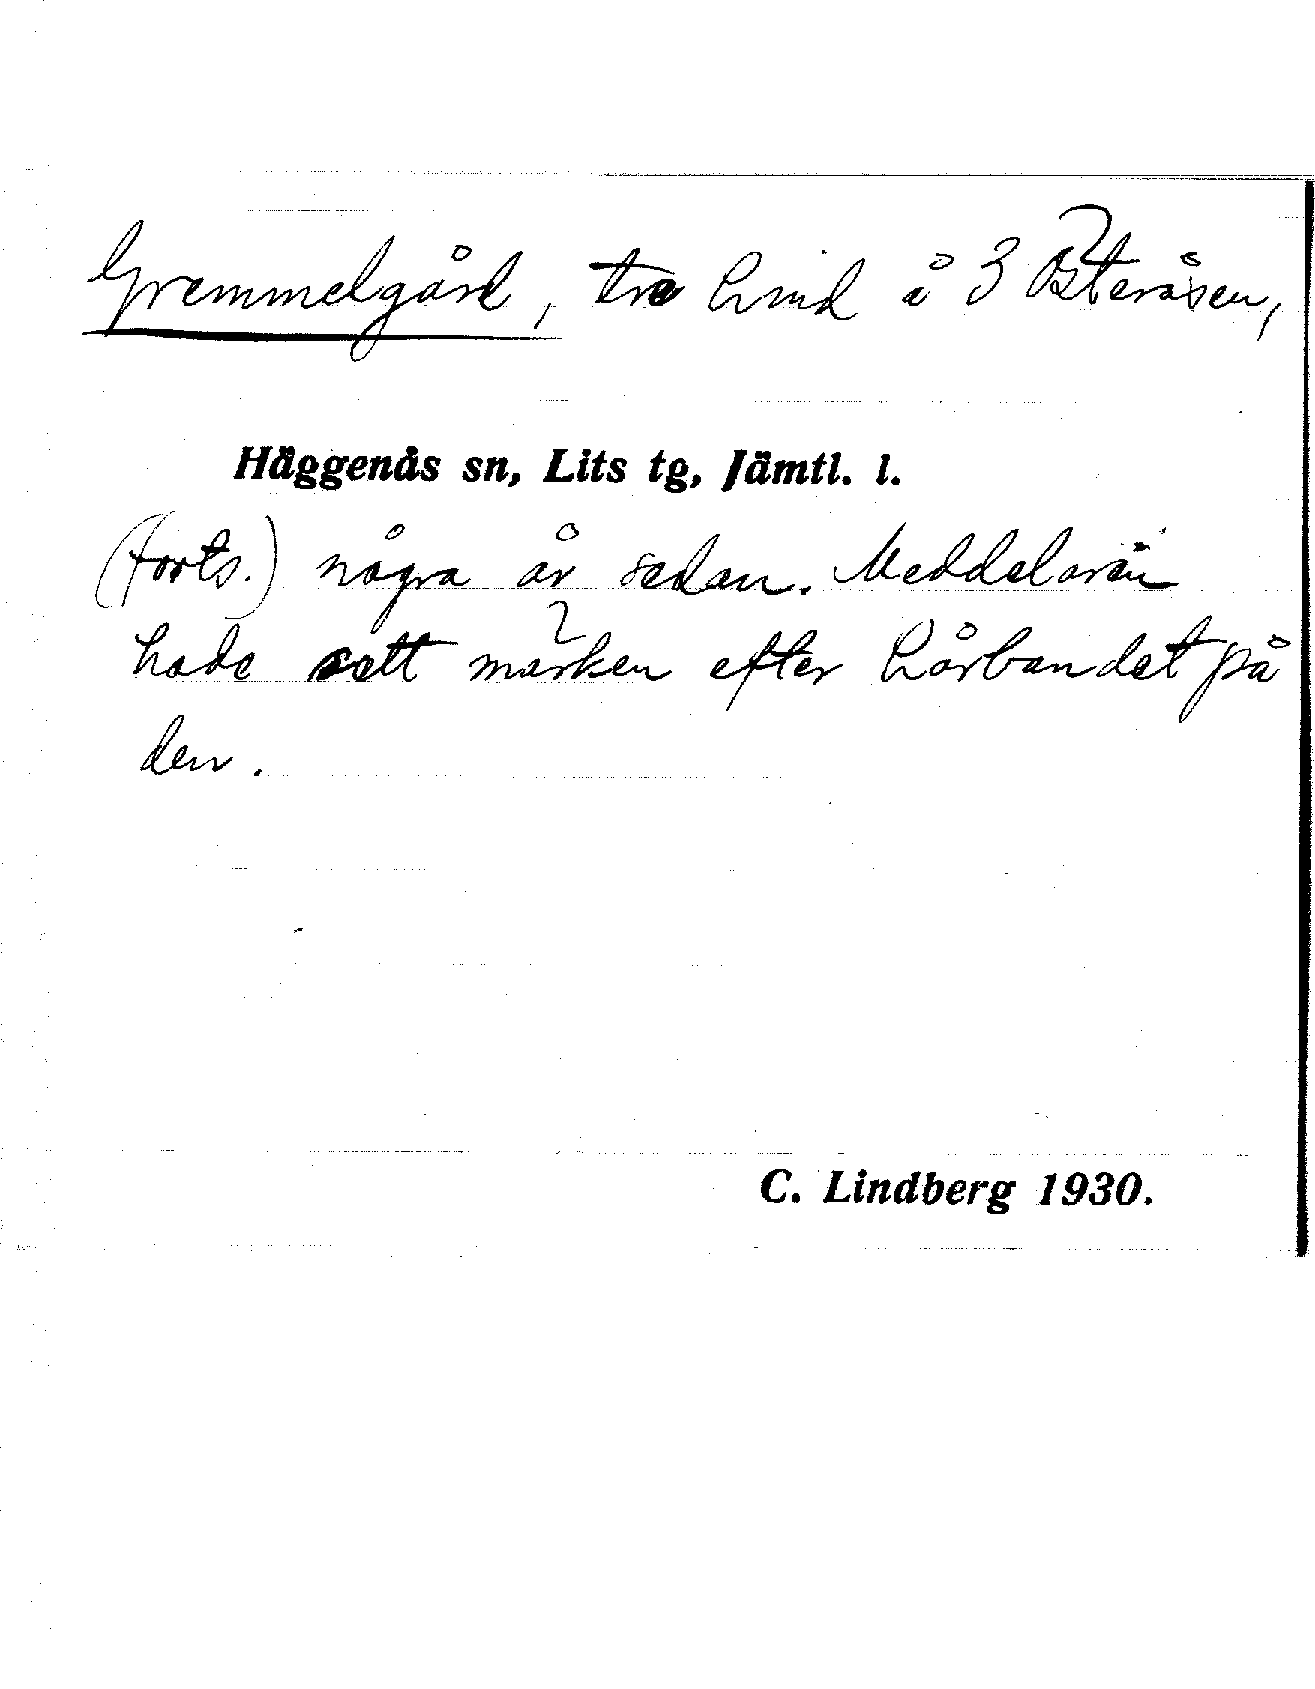 Gremmelgård, tre hmd å 3 Österåsen,
Häggenås sn, Lits tg, Jämtl. l.
(forts.) några år sedan. Meddelaren
hade sett märken efter hårbandet på
den.
C. Lindberg 1930.